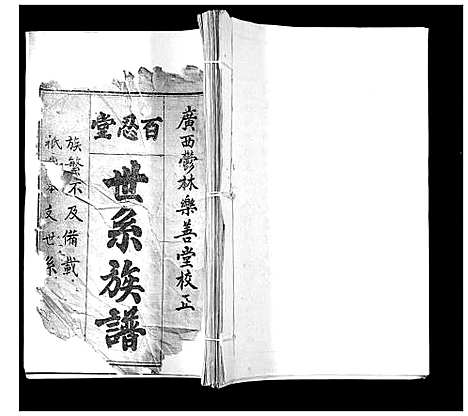 廣西鬱林樂善堂校正
百忍堂
世系族譜
族繁不及備載
祇
支世系